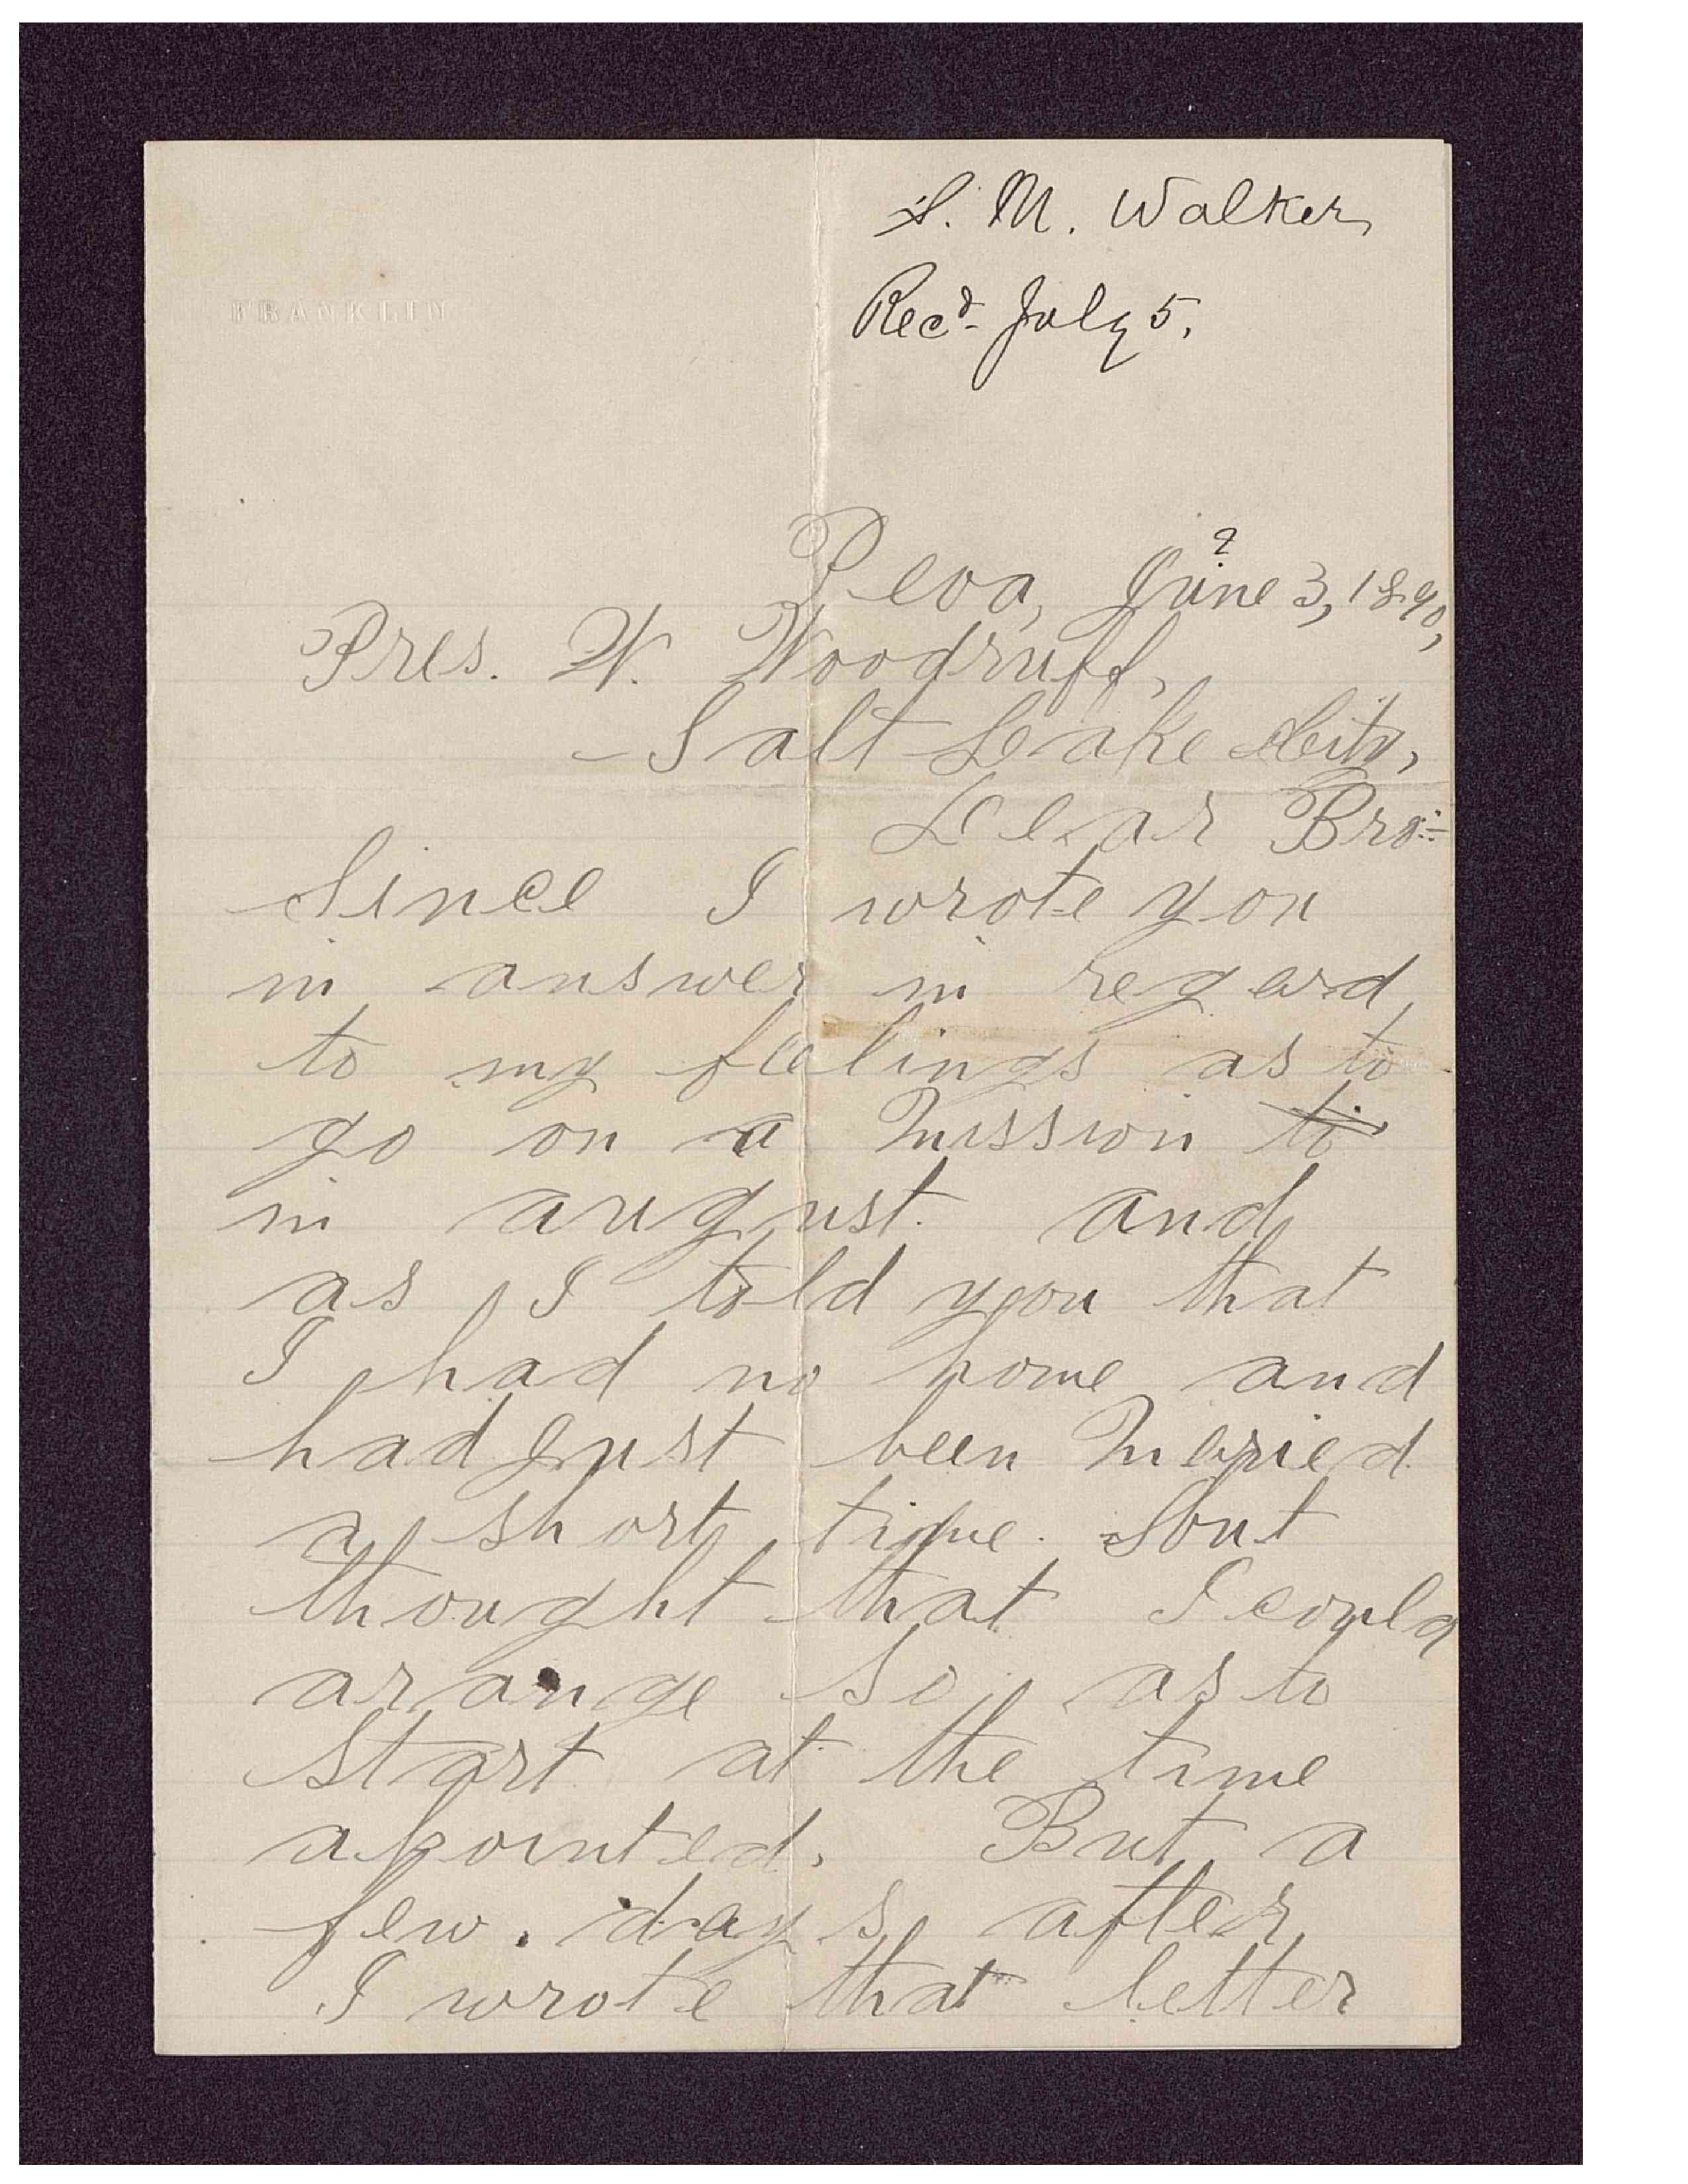 S. M. Walker
Rec^d. July 5.
FRANKLIN
?
Peoa, June 3, 1890,
Pres. W. Woodruff,
Salt Lake City,
Dear Bro:-
Since I wrote you
in answer in regard
to my feelings as to
go on a Mission to
in august. and
as I told you that
I had no home and
had just been Maried
a short time. but
thought that I could
arange so as to
start at the time
apointed. But a
few days after
I wrote that letter